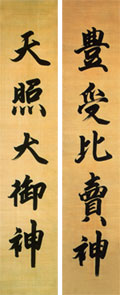 豊受比賣神
天照大御神